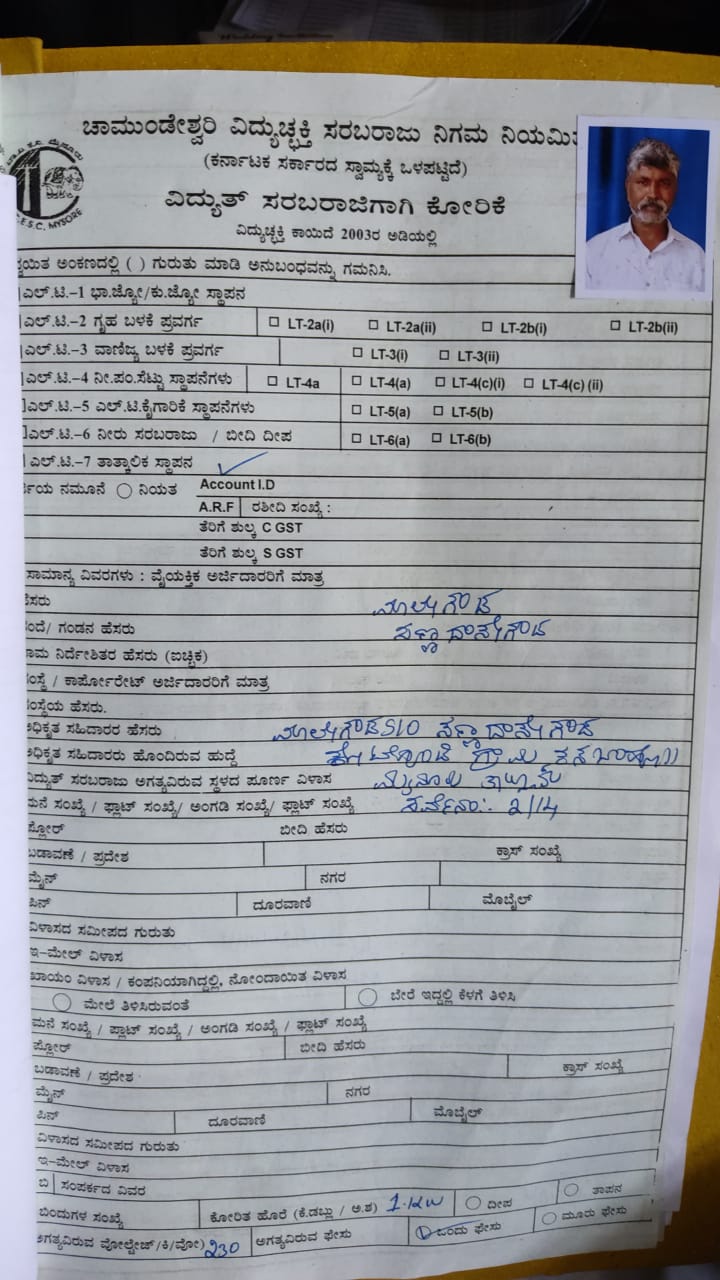 ಚಾಮುಂಡೇಶ್ವರಿ ವಿದ್ಯುಚ್ಛಕ್ತಿ ಸರಬರಾಜು ನಿಗಮ ನಿಯಮಿತ
(ಕರ್ನಾಟಕ ಸರ್ಕಾರದ ಸ್ವಾಮ್ಯಕ್ಕೆ ಒಳಪಟ್ಟಿದೆ)
C.E.S.C. MYSORE
ವಿದ್ಯುತ್ ಸರಬರಾಜಿಗಾಗಿ ಕೋರಿಕೆ
ವಿದ್ಯುಚ್ಛಕ್ತಿ ಕಾಯಿದೆ 2003ರ ಅಡಿಯಲ್ಲಿ
ಅಂಕಣದಲ್ಲಿ ( ) ಗುರುತು ಮಾಡಿ ಅನುಬಂಧವನ್ನು ಗಮನಿಸಿ.
ಎಲ್.ಟಿ.–1 ಭಾ.ಜ್ಯೋ/ಕು.ಜ್ಯೋ ಸ್ಥಾಪನ
ಎಲ್.ಟಿ.–2 ಗೃಹ ಬಳಕೆ ಪ್ರವರ್ಗ □ LT-2a(i) □ LT-2a(ii) □ LT-2b(i) □ LT-2b(ii)
ಎಲ್.ಟಿ.–3 ವಾಣಿಜ್ಯ ಬಳಕೆ ಪ್ರವರ್ಗ □ LT-3(i) □ LT-3(ii)
ಎಲ್.ಟಿ.–4 ನೀ.ಪಂ.ಸೆಟ್ಟು ಸ್ಥಾಪನೆಗಳು □ LT-4a □ LT-4(a) □ LT-4(c)(i) □ LT-4(c) (ii)
ಎಲ್.ಟಿ.–5 ಎಲ್.ಟಿ.ಕೈಗಾರಿಕೆ ಸ್ಥಾಪನೆಗಳು □ LT-5(a) □ LT-5(b)
ಎಲ್.ಟಿ.–6 ನೀರು ಸರಬರಾಜು / ಬೀದಿ ದೀಪ □ LT-6(a) □ LT-6(b)
ಎಲ್.ಟಿ.–7 ತಾತ್ಕಾಲಿಕ ಸ್ಥಾಪನ
ನಮೂನೆ ○ ನಿಯತ Account I.D
A.R.F ರಶೀದಿ ಸಂಖ್ಯೆ :
ತೆರಿಗೆ ಶುಲ್ಕ C GST
ತೆರಿಗೆ ಶುಲ್ಕ S GST
ಸಾಮಾನ್ಯ ವಿವರಗಳು : ವೈಯಕ್ತಿಕ ಅರ್ಜಿದಾರರಿಗೆ ಮಾತ್ರ
ಹೆಸರು
ಗಂಡನ ಹೆಸರು ಸಣ್ಣದಾಸೇಗೌಡ
ನಿರ್ದೇಶಿತರ ಹೆಸರು (ಐಚ್ಛಿಕ)
/ ಕಾರ್ಪೋರೇಟ್ ಅರ್ಜಿದಾರರಿಗೆ ಮಾತ್ರ
ಹೆಸರು.
ಅಧಿಕೃತ ಸಹಿದಾರರ ಹೆಸರು S/O ಸಣ್ಣದಾಸೇಗೌಡ
ಅಧಿಕೃತ ಸಹಿದಾರರು ಹೊಂದಿರುವ ಹುದ್ದೆ ಗ್ರಾಮ
ವಿದ್ಯುತ್ ಸರಬರಾಜು ಅಗತ್ಯವಿರುವ ಸ್ಥಳದ ಪೂರ್ಣ ವಿಳಾಸ ಮೈಸೂರು ತಾಲ್ಲೂಕು
ಮನೆ ಸಂಖ್ಯೆ / ಫ್ಲಾಟ್ ಸಂಖ್ಯೆ/ ಅಂಗಡಿ ಸಂಖ್ಯೆ/ ಫ್ಲಾಟ್ ಸಂಖ್ಯೆ ಸರ್ವೆನಂ:- 2/14
ಫ್ಲೋರ್ ಬೀದಿ ಹೆಸರು
ಬಡಾವಣೆ / ಪ್ರದೇಶ ಕ್ರಾಸ್ ಸಂಖ್ಯೆ
ಮೈನ್ ನಗರ
ಪಿನ್ ದೂರವಾಣಿ ಮೊಬೈಲ್
ವಿಳಾಸದ ಸಮೀಪದ ಗುರುತು
ಇ–ಮೇಲ್ ವಿಳಾಸ
ಖಾಯಂ ವಿಳಾಸ / ಕಂಪನಿಯಾಗಿದ್ದಲ್ಲಿ, ನೋಂದಾಯಿತ ವಿಳಾಸ
○ ಮೇಲೆ ತಿಳಿಸಿರುವಂತೆ ○ ಬೇರೆ ಇದ್ದಲ್ಲಿ ಕೆಳಗೆ ತಿಳಿಸಿ
ಮನೆ ಸಂಖ್ಯೆ / ಪ್ಲಾಟ್ ಸಂಖ್ಯೆ / ಅಂಗಡಿ ಸಂಖ್ಯೆ / ಫ್ಲಾಟ್ ಸಂಖ್ಯೆ
ಫ್ಲೋರ್ ಬೀದಿ ಹೆಸರು
ಬಡಾವಣೆ / ಪ್ರದೇಶ ಕ್ರಾಸ್ ಸಂಖ್ಯೆ
ಮೈನ್ ನಗರ
ಪಿನ್ ದೂರವಾಣಿ ಮೊಬೈಲ್
ವಿಳಾಸದ ಸಮೀಪದ ಗುರುತು
ಇ–ಮೇಲ್ ವಿಳಾಸ
ಬಿ ಸಂಪರ್ಕದ ವಿವರ
ಬಿಂದುಗಳ ಸಂಖ್ಯೆ ಕೋರಿತ ಹೊರೆ (ಕೆ.ಡಬ್ಲು / ಅ.ಶ) 1.KW ○ ದೀಪ ○ ತಾಪನ
ಅಗತ್ಯವಿರುವ ವೋಲ್ಟೇಜ್/ಕಿ/ವೋ) 230 ಅಗತ್ಯವಿರುವ ಫೇಸು ○ ಒಂದು ಫೇಸು ○ ಮೂರು ಫೇಸು